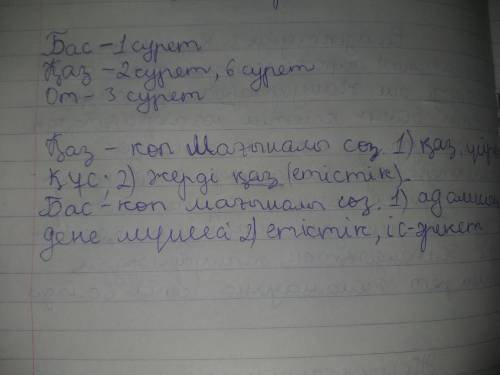 Бас – 1 сурет
Қаз – 2 сурет, 6 сурет
От – 3 сурет
Қаз – көп мағыналы сөз. 1) қаз,
құс; 2) жерді қаз (етістік).
Бас – көп мағыналы сөз. 1)
дене мүшесі 2) етістік, іс-әрекет